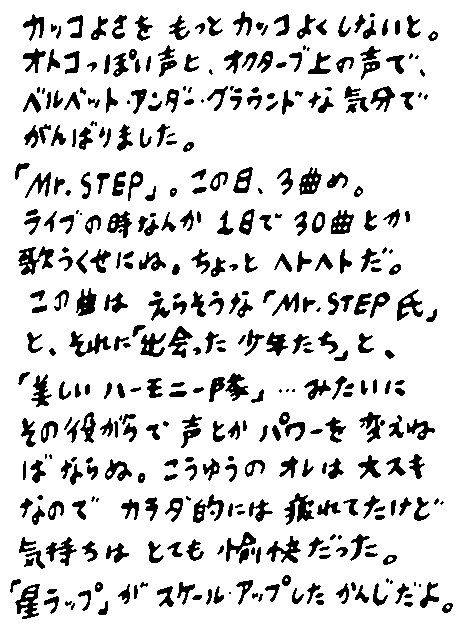 カッコよさを もっと カッコよくしないと。
オトコっぽい声と、オクターブ上の声で、
ベルベット・アンダー・グラウンドな 気分で
がんばりました。
「Mr.STEP」。この日、3曲め。
ライブの時なんか 1日で 30曲とか
歌うくせにね。ちょっと ヘトヘトだ。
この曲は えらそうな「Mr.STEP氏」
と、それに「出会った 少年たち」と、
「美しい ハーモニー隊」…みたいに
その役がらで 声とか パワーを 変えね
ばならぬ。こうゆうの オレは 大スキ
なので カラダ的には 疲れてたけど
気持ちは とても 愉快だった。
「星ラップ」が スケール・アップした かんじだよ。